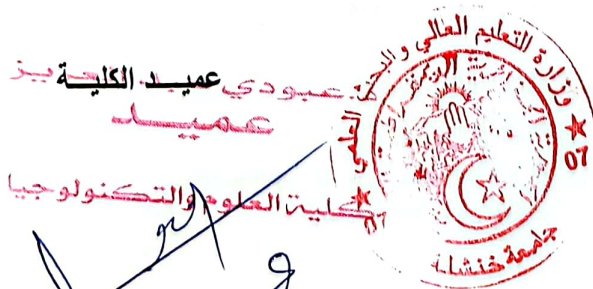 عميد الكلية
عبودي
عميد
كلية العلوم والتكنولوجيا
وزارة التعليم العالي والبحث العلمي
07
جامعة خنشلة
07